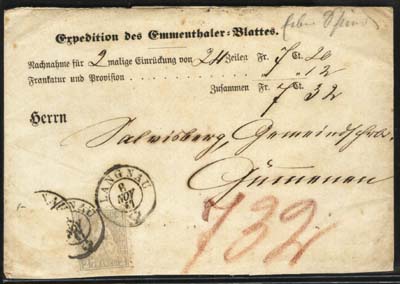 Expedition des Emmenthaler-Blattes.
Nachnahme für 2 malige Einrückung von 24 Zeilen Fr. 7 Ct. 20
Frankatur und Provision " " 12
Zusammen Fr. 7 32
Herrn
Salvisberg, Gemeindschrbr.
Gümmenen
LANGNAU
8
NOV
LANGNAU
732